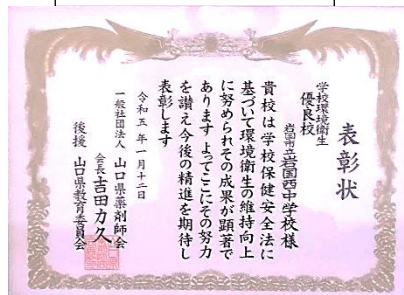 表彰状
学校環境衛生
優良校
岩国市立岩国西中学校様
貴校は学校保健安全法に
基づいて環境衛生の維持向上
に努められその成果が顕著で
あります よってここにその努力
を讃え今後の精進を期待し
表彰します
令和五年一月十二日
一般社団法人 山口県薬剤師会
会長 吉田力久
後援 山口県教育委員会